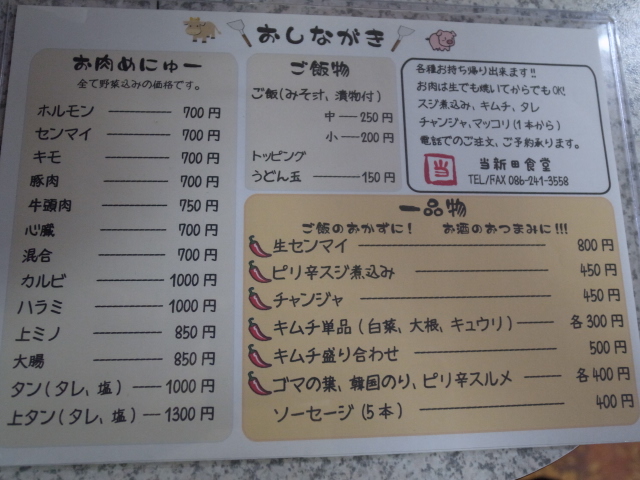 おしながき
お肉めにゅー
全て野菜込みの価格です。
ホルモン 700円
センマイ 700円
キモ 700円
豚肉 700円
牛頭肉 750円
心臓 700円
混合 700円
カルビ 1000円
ハラミ 1000円
上ミノ 850円
大腸 850円
タン(タレ、塩) 1000円
上タン(タレ、塩) 1300円
ご飯物
ご飯(みそ汁、漬物付)
中 250円
小 200円
トッピング
うどん玉 150円
各種お持ち帰り出来ます!!
お肉は生でも焼いてからでもOK!
スジ煮込み、キムチ、タレ
チャンジャ、マッコリ(1本から)
電話でのご注文、ご予約承ります。
当 当新田食堂
TEL/FAX 086-241-3558
一品物
ご飯のおかずに! お酒のおつまみに!!!
生センマイ 800円
ピリ辛スジ煮込み 450円
チャンジャ 450円
キムチ単品(白菜、大根、キュウリ) 各300円
キムチ盛り合わせ 500円
ゴマの葉、韓国のり、ピリ辛スルメ 各400円
ソーセージ(5本) 400円